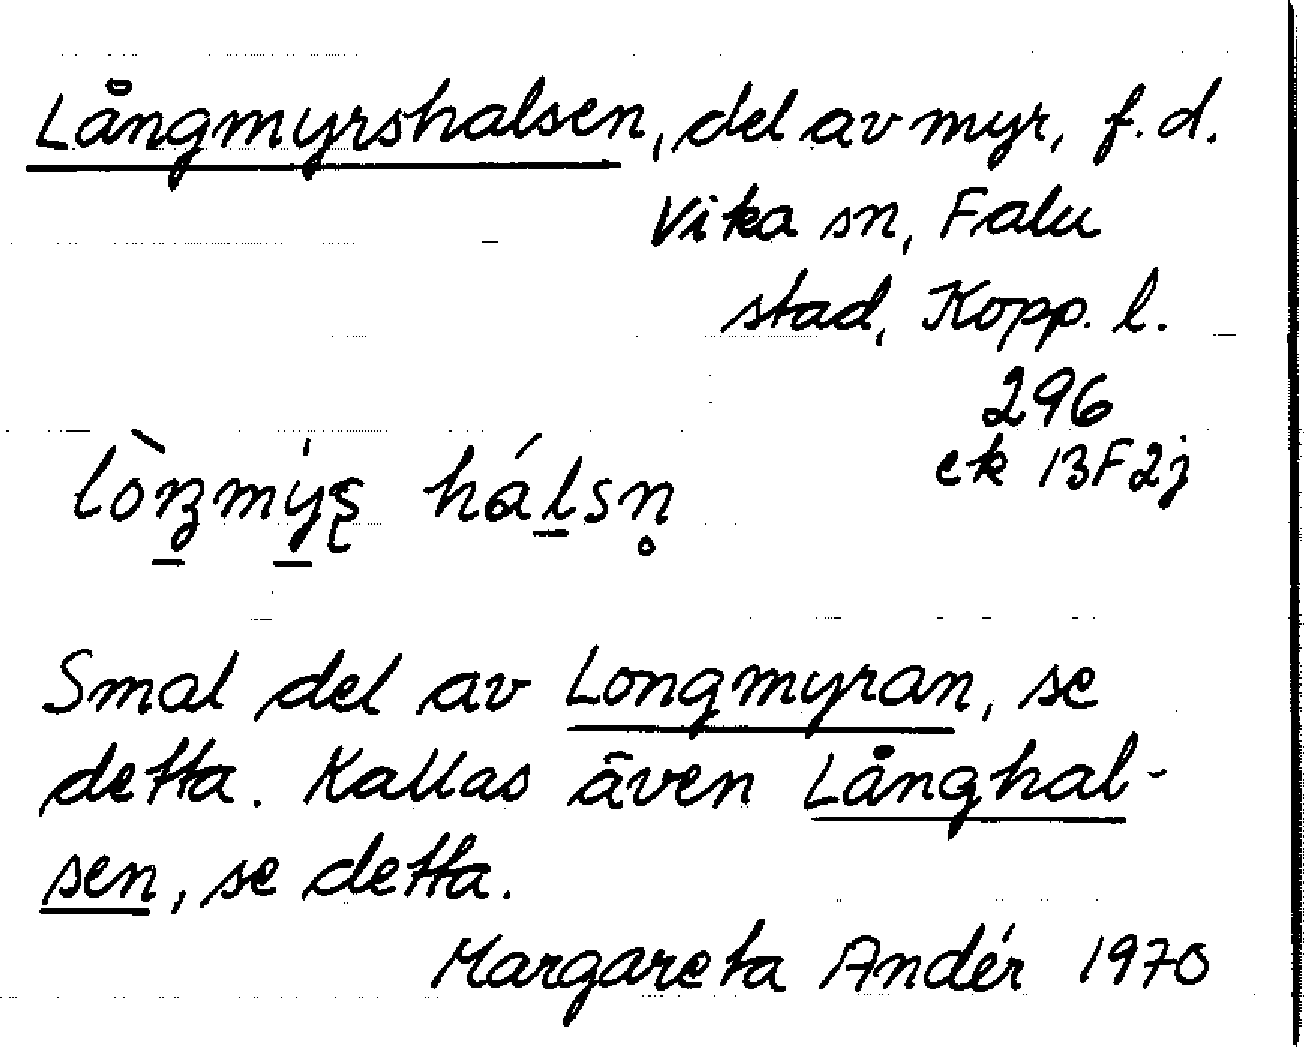 Långmyrshalsen, del av myr, f.d.
Vika sn, Falu
stad, Kopp. l.
296
ek 13F2j
hálsn̥
Smal del av Longmyran, se
detta. Kallas även Långhal-
sen, se detta.
Margareta Andér 1970